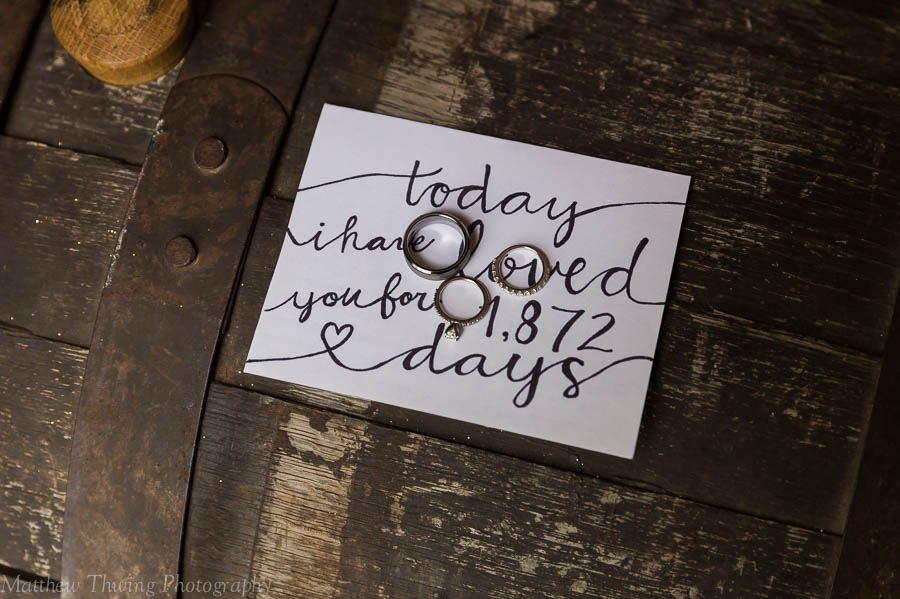 today
i have loved
you for 1,872
days
Matthew Thwing Photography